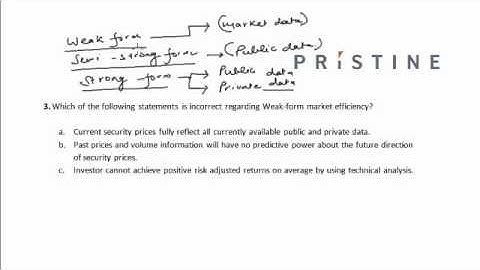 Weak form → (Market data)
Semi-strong form → (Public data)
Strong form → Public data
→ Private data
PRISTINE
3. Which of the following statements is incorrect regarding Weak-form market efficiency?
a. Current security prices fully reflect all currently available public and private data.
b. Past prices and volume information will have no predictive power about the future direction
of security prices.
c. Investor cannot achieve positive risk adjusted returns on average by using technical analysis.